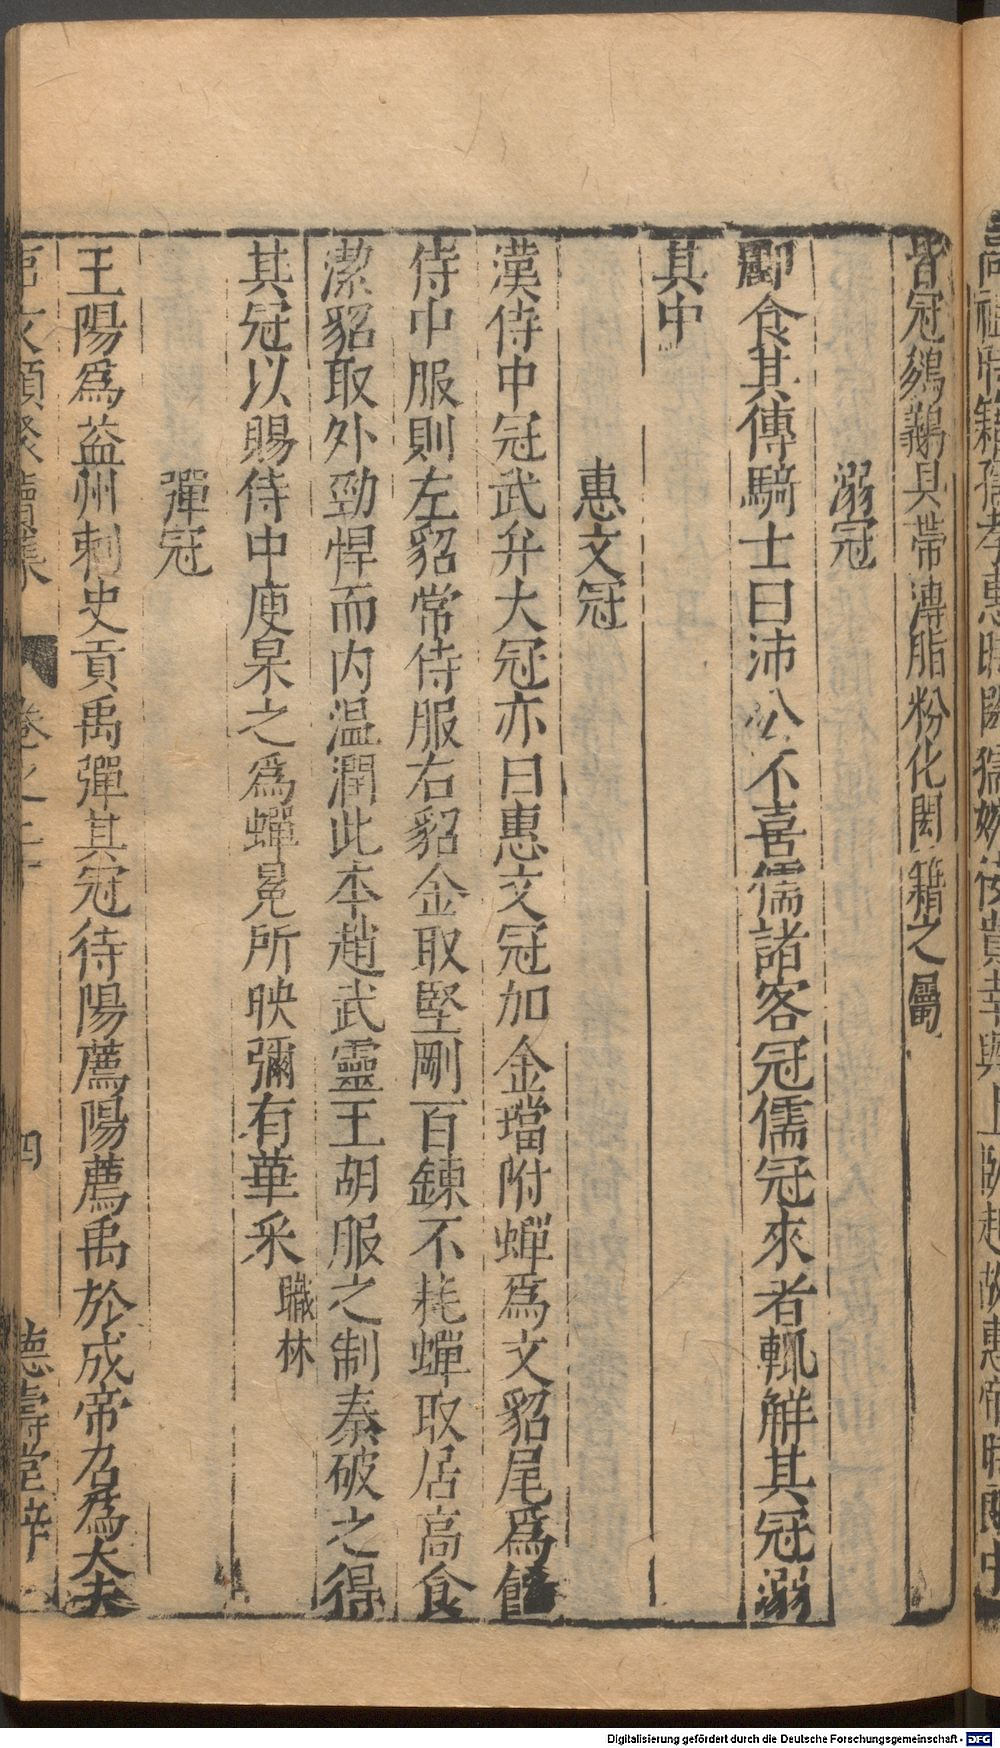 皆冠鵕鸃具帶溥脂粉化閎籍之屬
溺冠
酈食其傳騎士曰沛公不喜儒諸客冠儒冠來者輒觧其冠溺
其中
惠文冠
漢侍中冠武弁大冠亦曰惠文冠加金璫附蟬爲文貂尾爲餙
侍中服則左貂常侍服右貂金取堅剛百鍊不耗蟬取居高食
潔貂取外勁悍而内温潤此本趙武靈王胡服之制秦破之得
其冠以賜侍中庾杲之爲蟬冕所映彌有華采職林
彈冠
王陽爲益州刺史貢禹彈其冠待陽薦陽薦禹於成帝召爲大夫
卷之二十
四
德壽堂梓
Digitalisierung gefördert durch die Deutsche Forschungsgemeinschaft - DFG